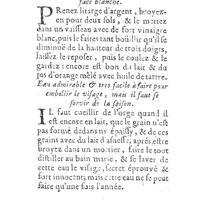 face blanche.
PRenez litarge d'argent, broyez-
en pour deux sols, & le mettez
dans un vaisseau avec de fort vinaigre
blanc, puis le faites tant boüillir qu'il se
diminuë de la hauteur de trois doigts,
laissez le reposer, puis le coulez & le
gardez: encore est bon du lait & du
jus d'orange mêlé avec huile de tartre.
Eau admirable & tres facile à faire pour
embellir le visage, mais il faut se
servir de la saison.
IL faut cueillir de l'orge quand il
est encore en lait, que le grain n'est
pas formé dedans ny épaissy, & de ces
grains avec du lait d'asnesse, aprés estre
broyez dans un mortier, faire le tout
distiller au bain marie, & se laver de
cette eau le visage, secret éprouvé &
fort innocent, mais cette eau ne se peut
faire qu'une fois l'année.